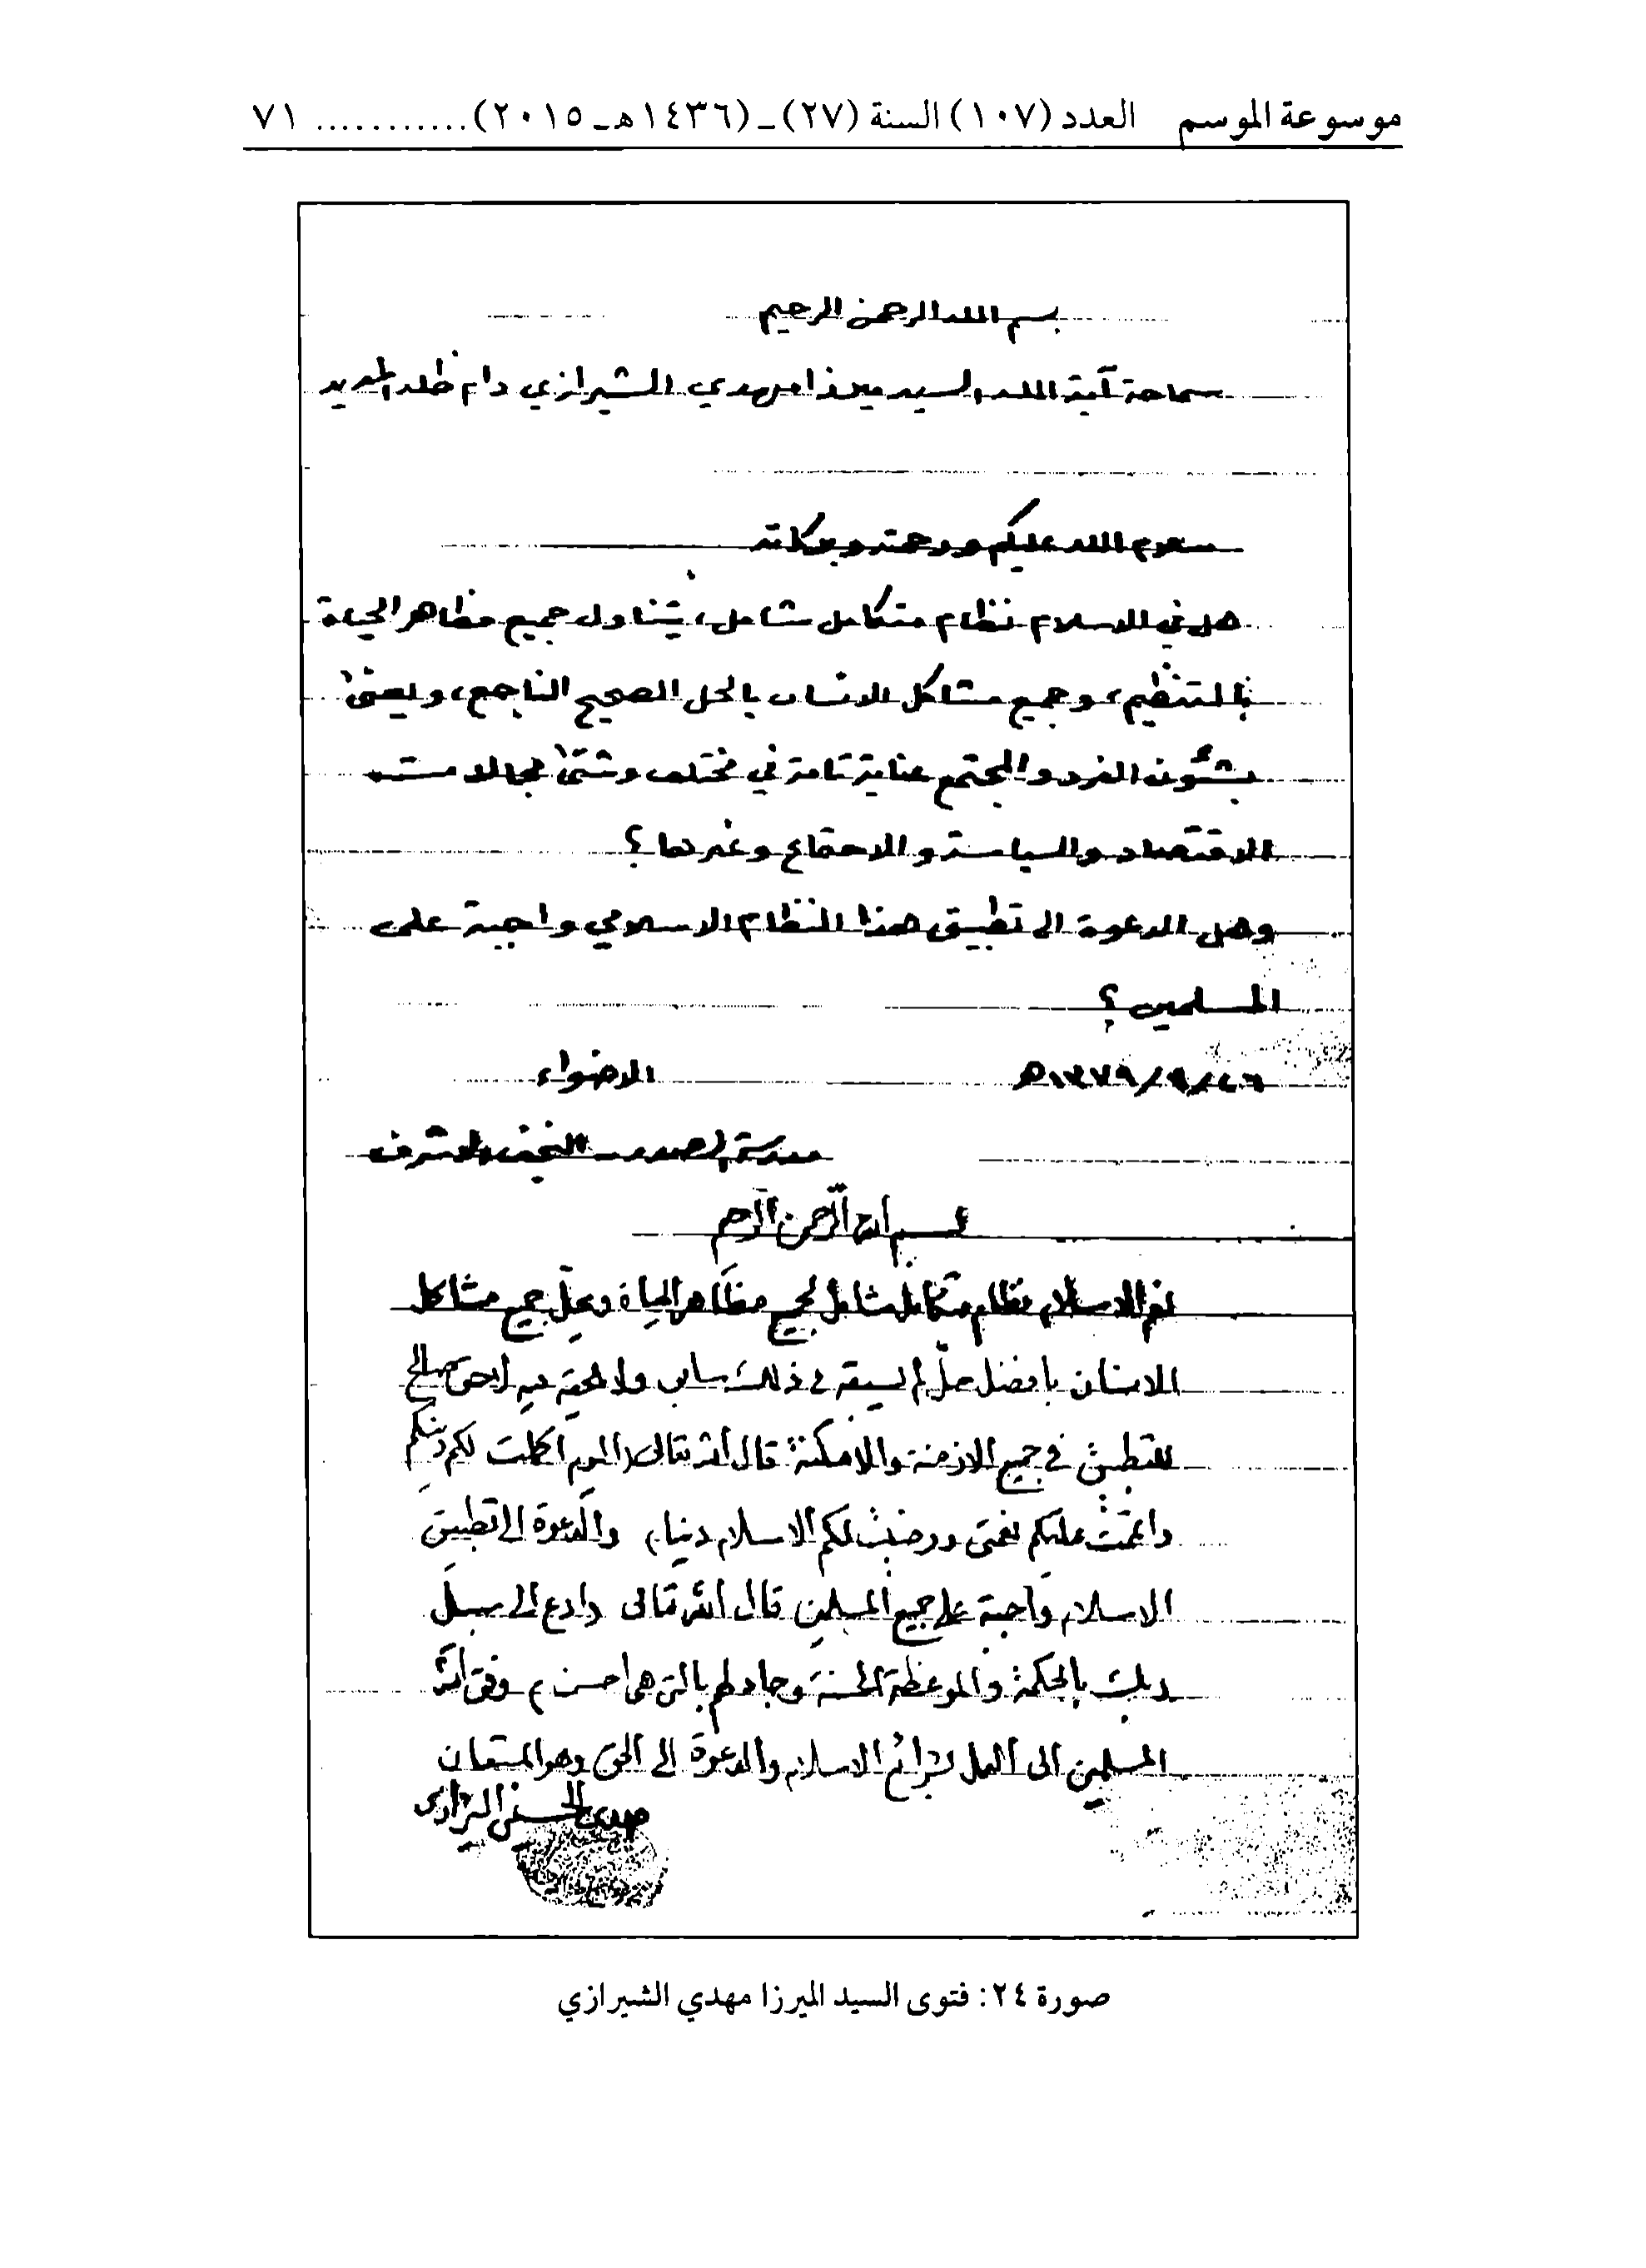 موسوعة الموسم العدد (١٠٧) السنة (٢٧) ـ (١٤٣٦هـ ـ ٢٠١٥) ............ ٧١
بسم الله الرحمن الرحيم
سماحة آية الله السيد ميرزا مهدي الشيرازي دام ظله المديد
سلام الله عليكم ورحمته وبركاته
هل في الاسلام نظام متكامل شامل، يتناول جميع مظاهر الحياة
بالتنظيم، وجميع مشاكل الانسان بالحل الصحيح الناجع، ويعنىٰ
بشئون الفرد والمجتمع عناية تامة في مختلف وشتىٰ مجالاته من
الاقتصاد والسياسة والاجتماع وغيرها؟
وهل الدعوة الى تطبيق هذا النظام الاسلامي واجبة على
المسلمين؟
٢٦/٩/١٣٧٩هـ الاضواء
مدرسة الصدر ـ النجف الاشرف
بسم الله الرحمن الرحيم
نعم للاسلام نظام متكامل شامل لجميع مظاهر الحياة ويحلّ جميع مشاكل
الانسان بافضل حلّ لم يسبقه في ذلك سابق ولا يلحقه فيه لاحق صالح
للتطبيق في جميع الازمنة والامكنة قال الله تعالى (اليوم اكملت لكم دينكم
واتممت عليكم نعمتي ورضيت لكم الاسلام دينا) والدعوة الى تطبيق
الاسلام واجبة على جميع المسلمين قال الله تعالى (وادع الى سبيل
ربك بالحكمة والموعظة الحسنة وجادلهم بالتي هي احسن) وفق الله
المسلمين الى العمل بشرائع الاسلام والدعوة الى الحق وهو المستعان
مهدي الحسيني الشيرازي
صورة ٢٤: فتوى السيد الميرزا مهدي الشيرازي